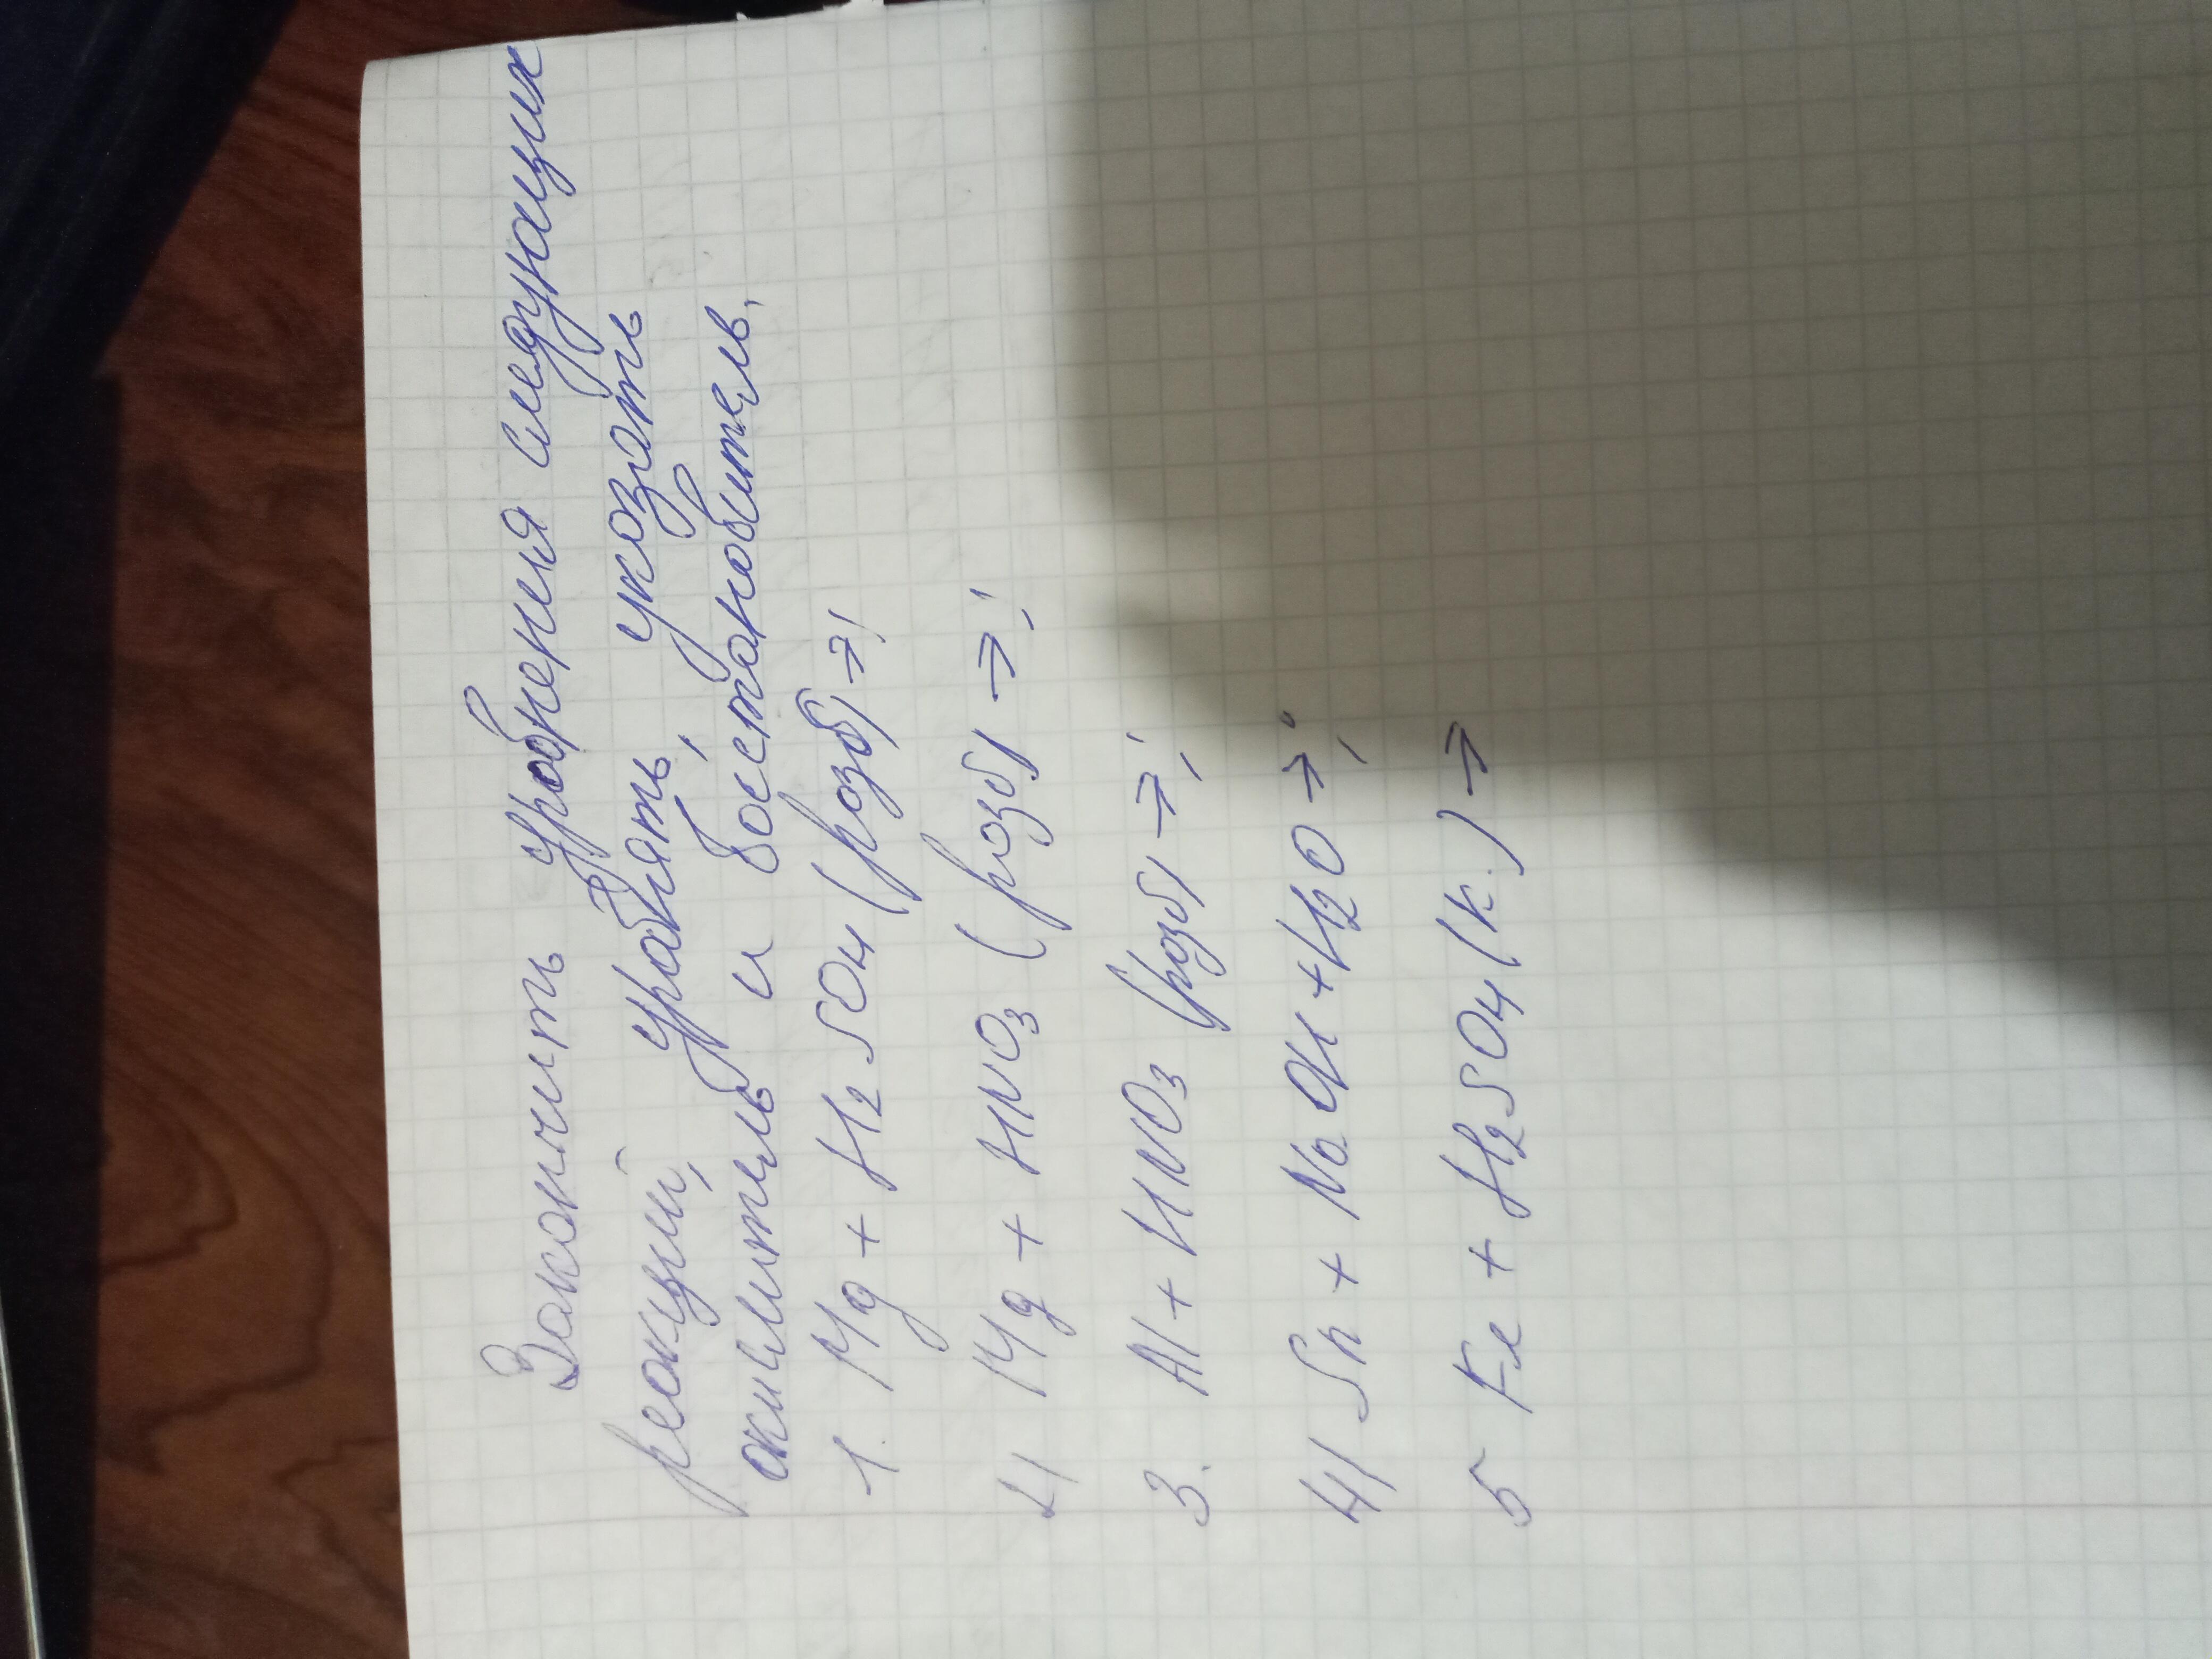 Закончить уравнения следующих
реакций, уравнять, указать
окислитель и восстановитель.
1. Mg + H2SO4 (разб) →;
2) Mg + HNO3 (разб) →;
3. Al + HNO3 (разб) →;
4) Sn + NaOH + H2O →;
5 Fe + H2SO4 (к.) →